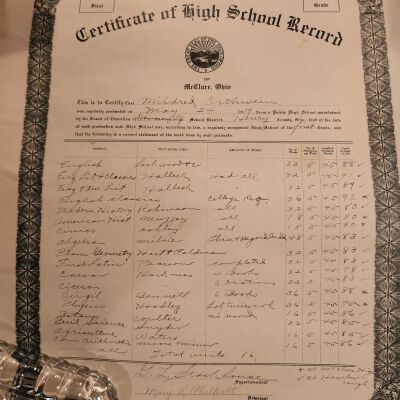 First Grade
Certificate of High School Record
OF
McClure, Ohio
This is to Certify that Mildred Orthwein
was regularly graduated on May 24 1919, from a Public High School maintained
by the Board of Education School District, Henry County, Ohio; that at the date
of said graduation said High School was, according to law, a regularly recognized High School of the first Grade, and
that the following is a correct statement of the work done by said graduate.
SUBJECT TEXT BOOK USED AMOUNT OF WORK
English Lockwood + E 32 5 45 88
Eng Lit + Classics Halleck Had all 32 5 45 91
Eng + Am Lit Halleck 32 5 45 89
English Classics College Req. 36 5 45 93
Modern History Robinson all 32 5 45 83
American Hist Muzzey all 18 5 40 90
Civics Ashley all 18 5 40
Algebra Milne Thru + Beyond Quad 48 5 45 83
Plane Geometry Hart + Feldman 32 5 45 83
First Latin completed 32 5 45 83
Caesar Harkness 4 Books 32 5 45 78
Cicero 6 orations 32 5 45
Virgil Bennett 6 Books 36 5 45 58
Physics Hoadley 36 5 45 70
Botany Coulter 16 5 40 86
Genl Science Snyder 32 5 45 85
Agriculture Waters 16 5 40 86
Com Arithmetic Moore + Miner 16 5
all Total units 16
Superintendent
Mary R. Philpott
Principal